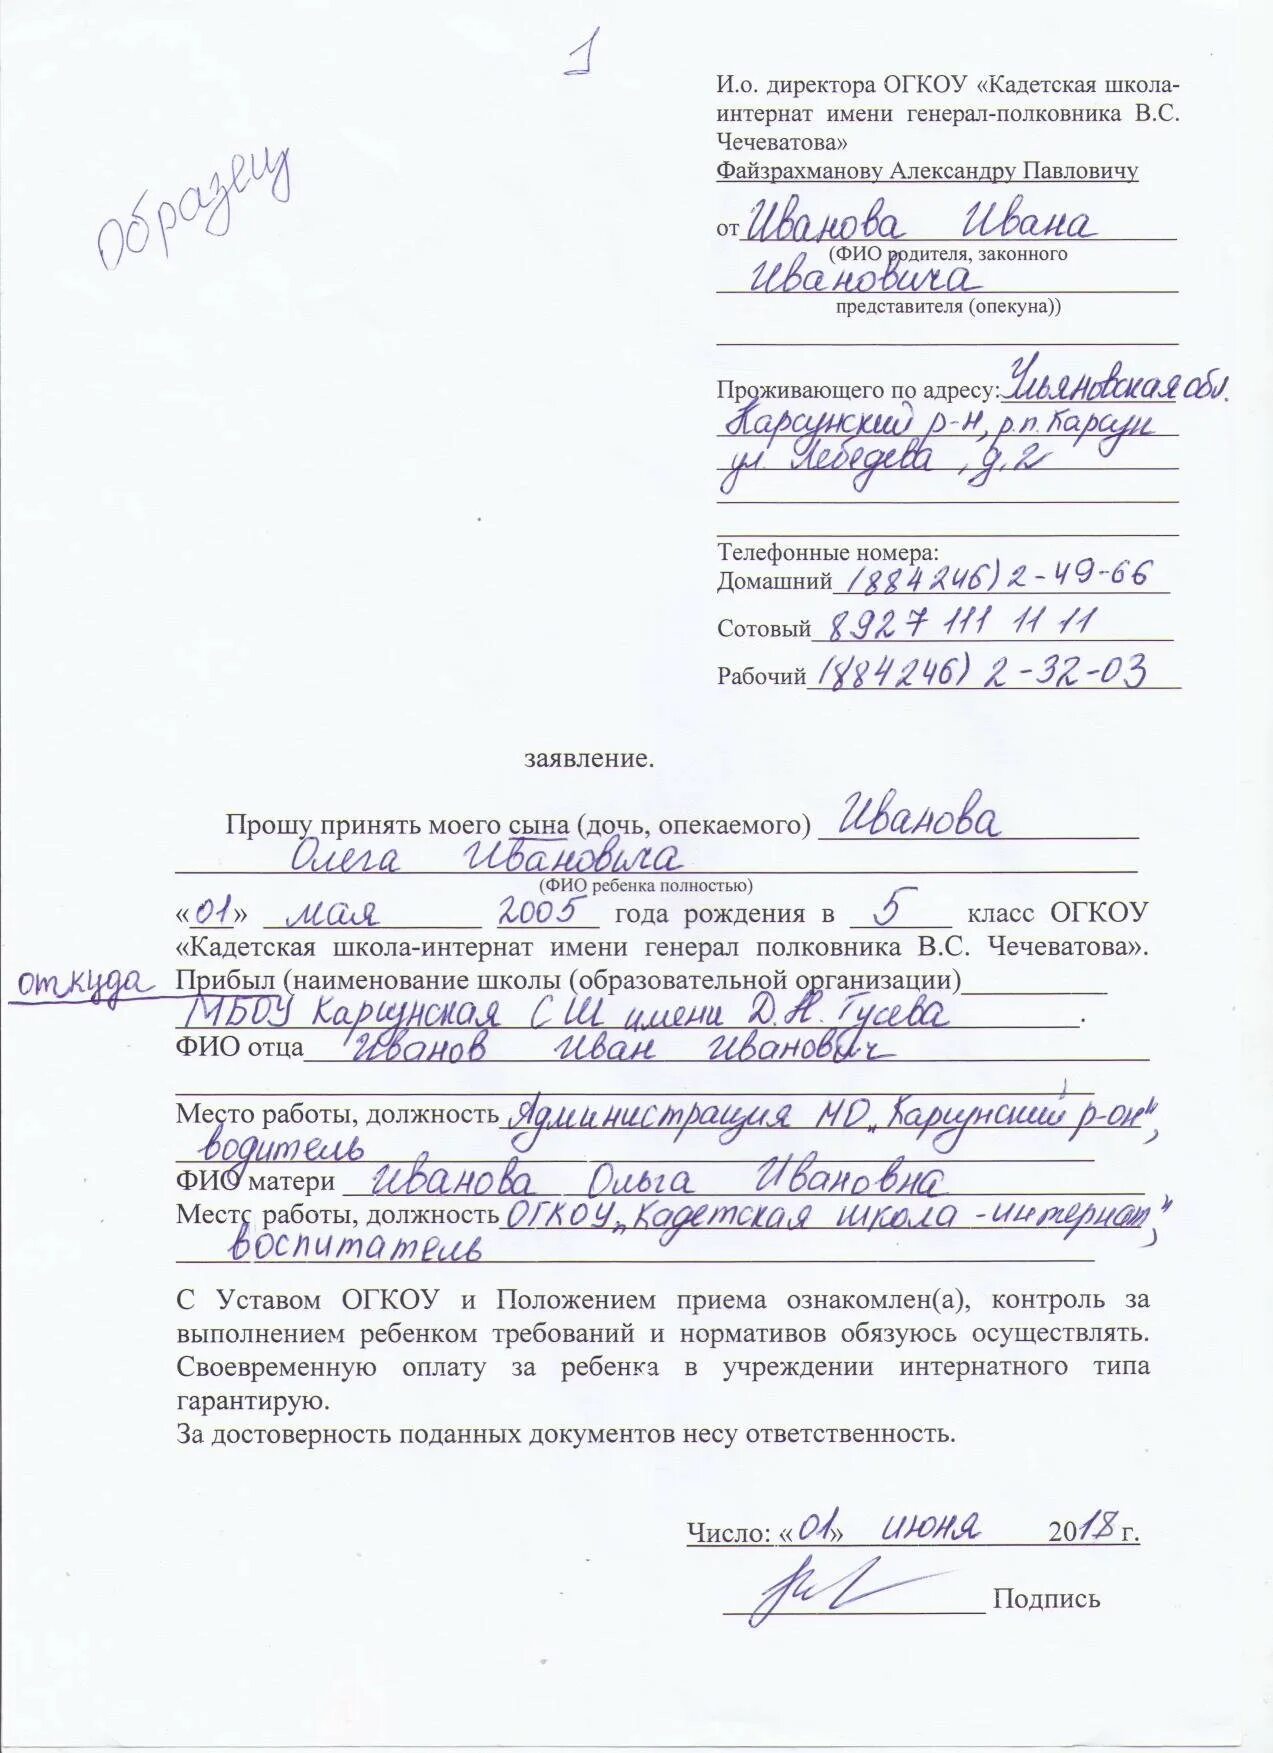 1
Образец
И.о. директора ОГКОУ «Кадетская школа-
интернат имени генерал-полковника В.С.
Чечеватова»
Файзрахманову Александру Павловичу
от Иванова Ивана
(ФИО родителя, законного
Ивановича
представителя (опекуна))
Проживающего по адресу: Ульяновская обл.
Карсунский р-н, р.п. Карсун
ул. Лебедева, д. 2
Телефонные номера:
Домашний (884246) 2-49-66
Сотовый 8927 111 11 11
Рабочий (884246) 2-32-03
заявление.
Прошу принять моего сына (дочь, опекаемого) Иванова
Олега Ивановича
(ФИО ребенка полностью)
«01» мая 2005 года рождения в 5 класс ОГКОУ
«Кадетская школа-интернат имени генерал полковника В.С. Чечеватова».
откуда Прибыл (наименование школы (образовательной организации)
МБОУ Карсунская СШ имени Д.Н. Гусева.
ФИО отца Иванов Иван Иванович
Место работы, должность Администрация МО „Карсунский р-он",
водитель
ФИО матери Иванова Ольга Ивановна
Место работы, должность ОГКОУ „Кадетская школа-интернат",
воспитатель
С Уставом ОГКОУ и Положением приема ознакомлен(а), контроль за
выполнением ребенком требований и нормативов обязуюсь осуществлять.
Своевременную оплату за ребенка в учреждении интернатного типа
гарантирую.
За достоверность поданных документов несу ответственность.
Число: «01» июня 2018 г.
Подпись